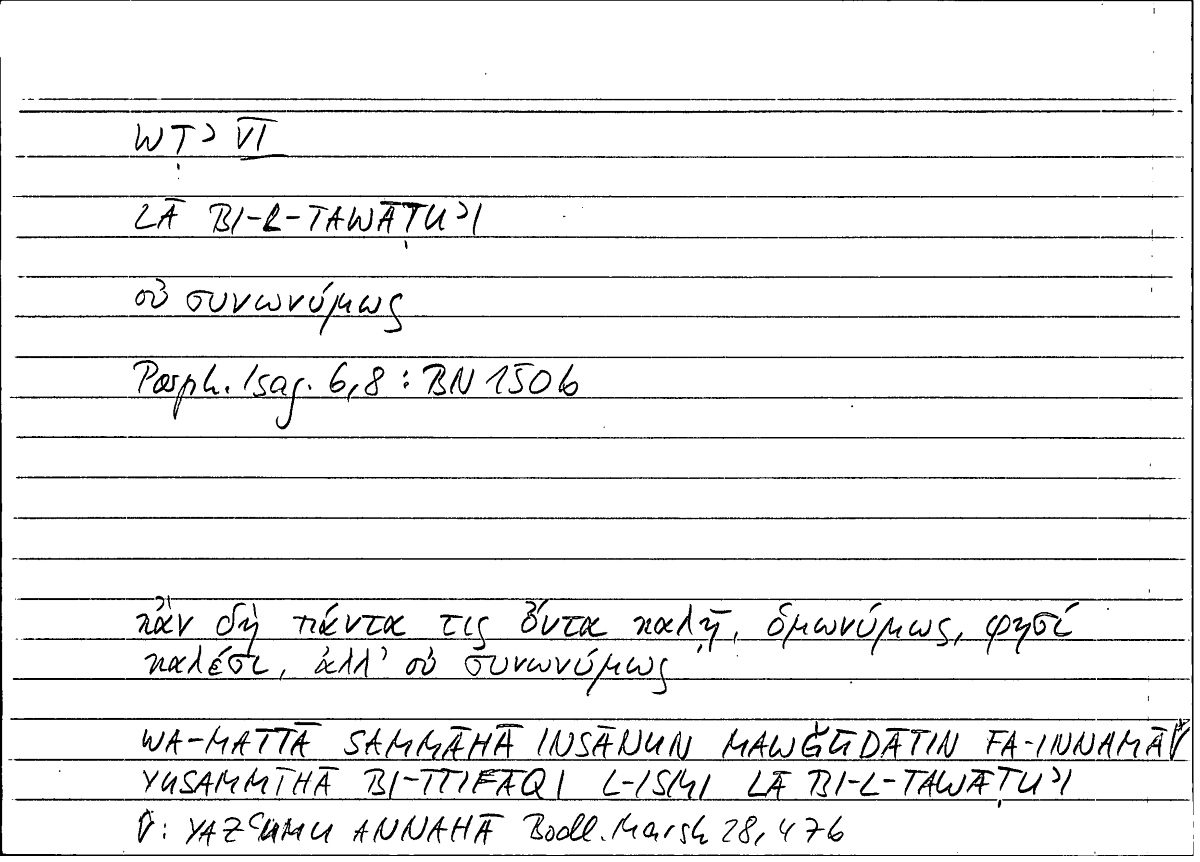 WṬʾ VI
LĀ BI-L-TAWĀṬUʾI
οὐ συνωνύμως
Porph. Isag. 6,8 : BN 150b
κἂν δὴ πάντα τις ὄντα καλῇ, ὁμωνύμως, φησί
καλέσι, ἀλλ' οὐ συνωνύμως
WA-MATTĀ SAMMĀHĀ INSĀNUN MAWǦŪDĀTIN FA-INNAMĀ
YUSAMMĪHĀ BI-TTIFĀQI L-ISMI LĀ BI-L-TAWĀṬUʾI
: YAZʿUMU ANNAHĀ Bodl. Marsh 28, 47b